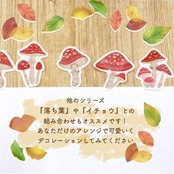 他のシリーズ
『落ち葉』や『イチョウ』との
組み合わせもオススメです！
あなただけのアレンジで可愛いく
デコレーションしてみてください